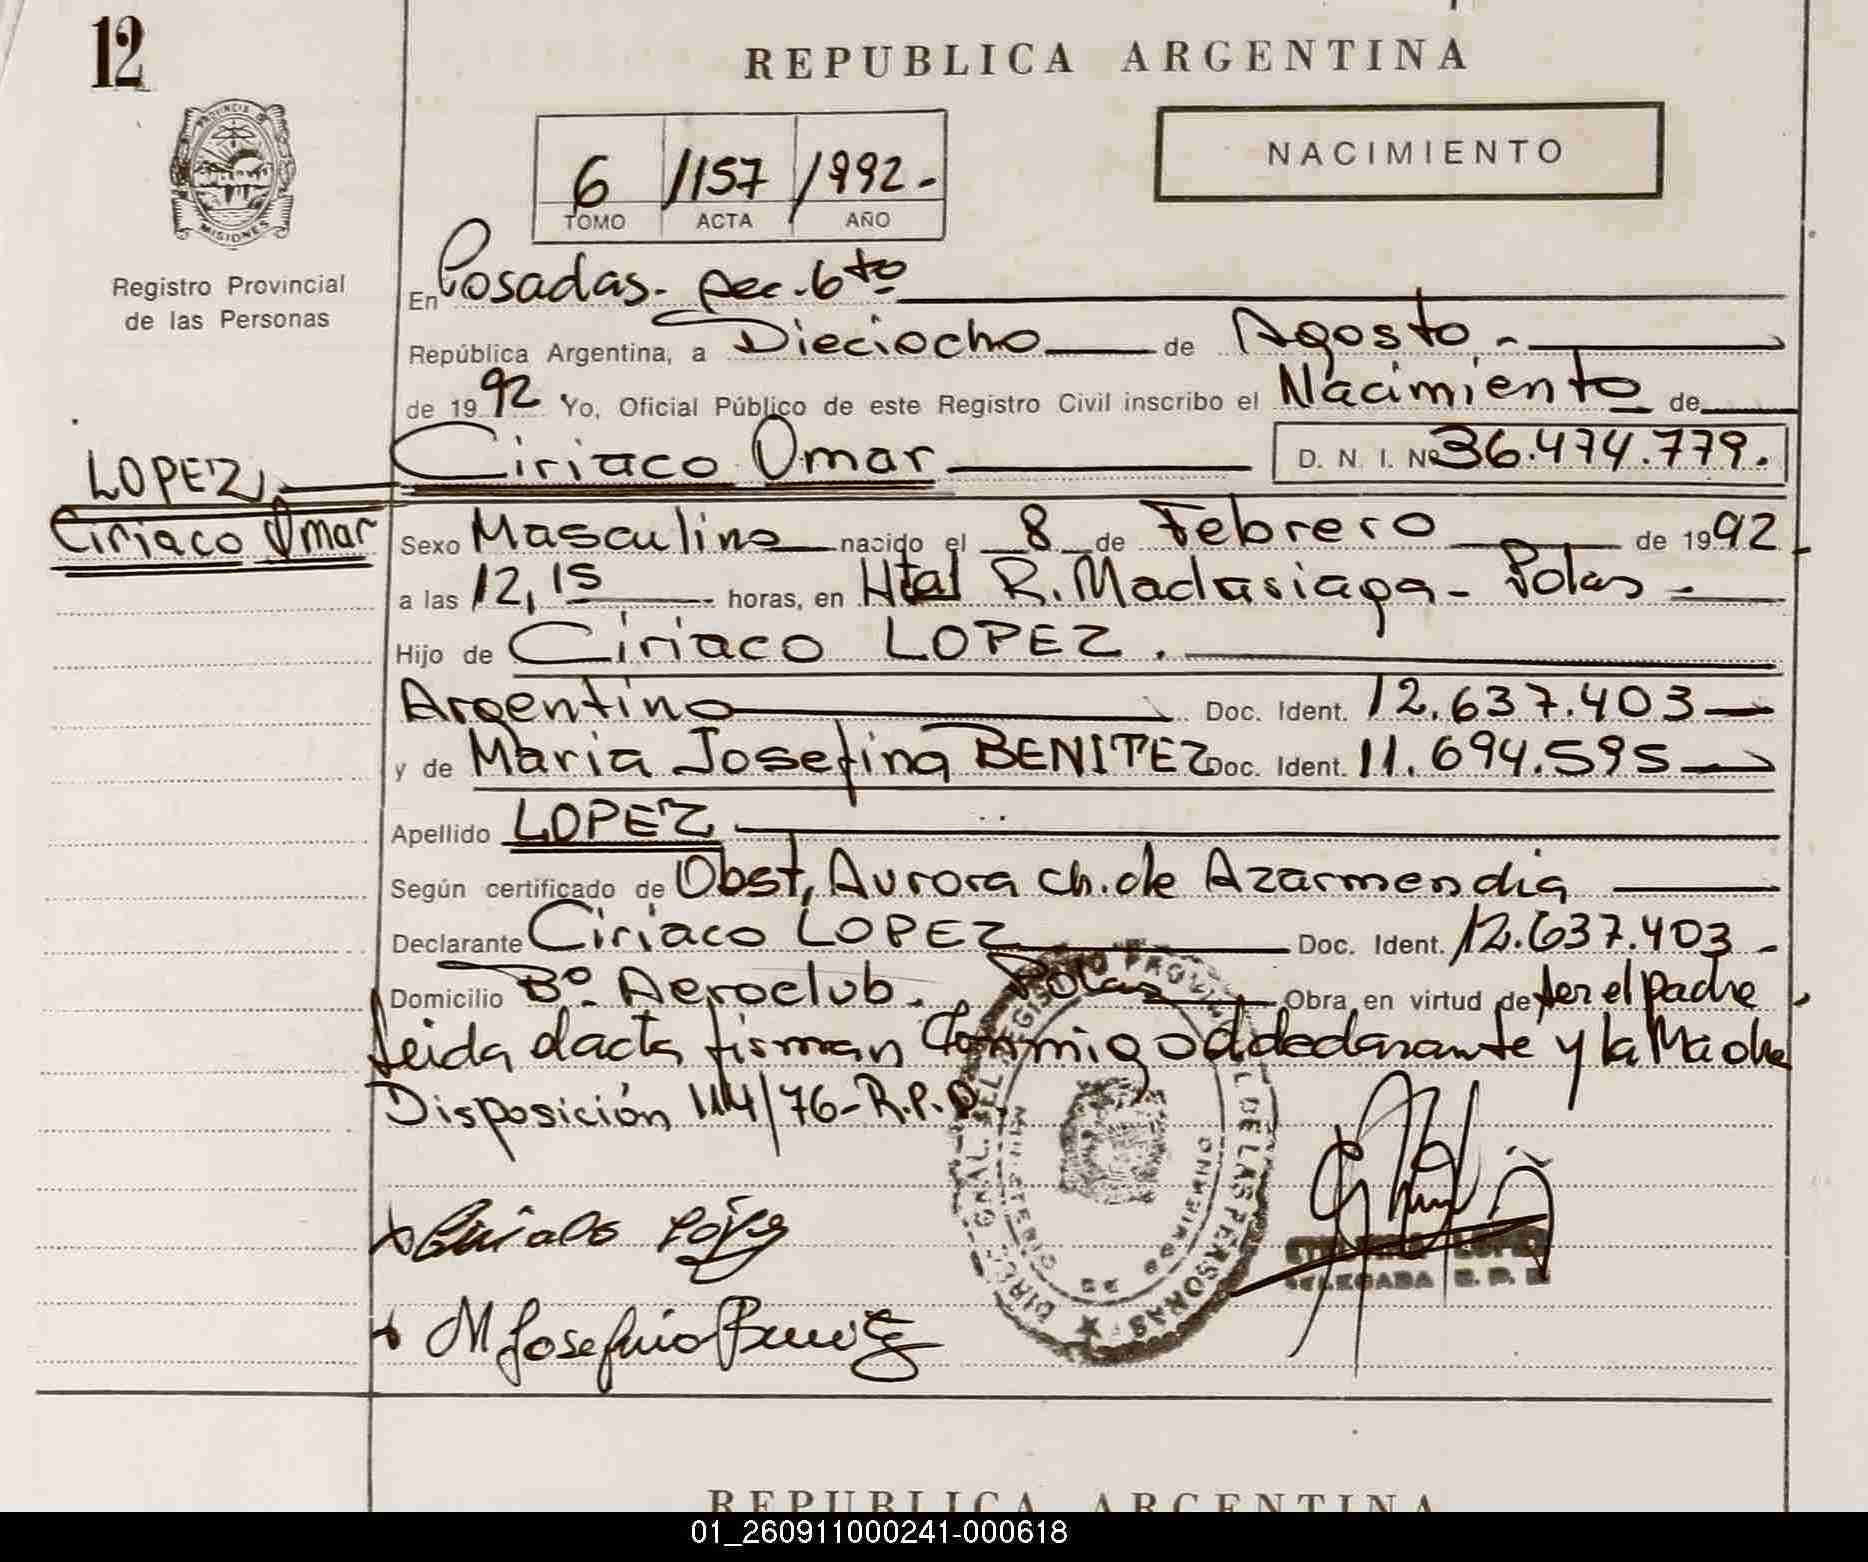 12
REPUBLICA ARGENTINA
NACIMIENTO
6 1157 1992.-
TOMO ACTA AÑO
PROVINCIA DE
MISIONES
Registro Provincial
de las Personas
En Posadas- sec.6to
República Argentina, a Dieciocho de Agosto.-
de 1992 Yo, Oficial Público de este Registro Civil inscribo el Nacimiento de
LOPEZ,
Ciriaco Omar
Ciriaco Omar D. N. I. Nº 36.474.779.
Sexo Masculino nacido el 8 de Febrero de 1992
a las 12,15 horas, en Htal R. Madariaga- Pdas -
Hijo de Ciriaco LOPEZ.
Argentino Doc. Ident. 12.637.403
y de Maria Josefina BENITEZ Doc. Ident. 11.694.595
Apellido LOPEZ
Según certificado de Obst, Aurora ch. de Azarmendia
Declarante Ciriaco LOPEZ Doc. Ident. 12.637.403-
Domicilio Bº. Aeroclub. Pdas Obra en virtud de ser el padre
Leida el acta firman Conmigo el declarante y la Madre
Disposición 114/76-R.P.P.
DIREC. GRAL. DEL REGISTRO PROVINCIAL DE LAS PERSONAS
MINISTERIO DE GOBIERNO
Ciriaco López
M Josefina Benitez
DELEGADA R. P. P.
REPUBLICA ARGENTINA
01_260911000241-000618